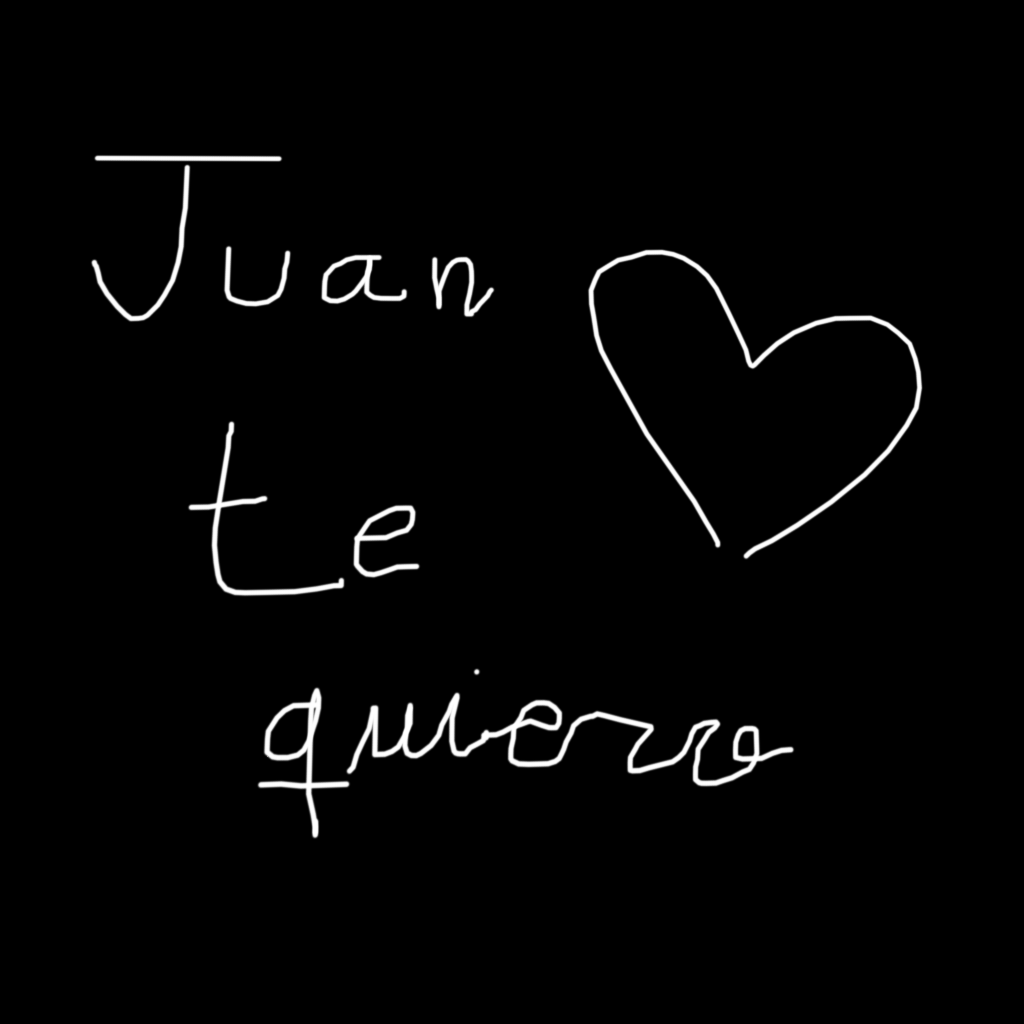 Juan
te
quiero